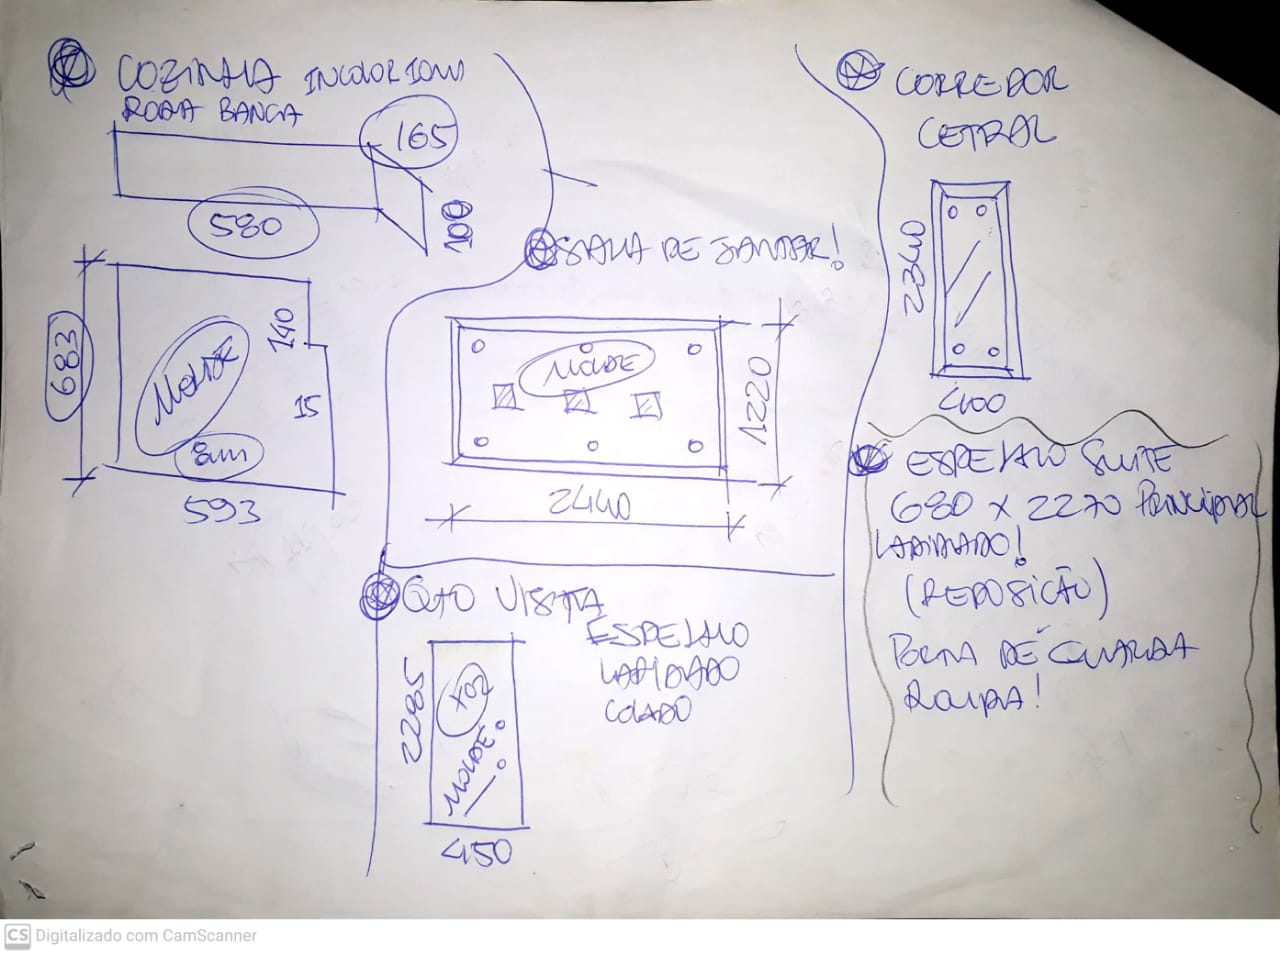 COZINHA INCOLOR 10mm
RODA BANCA
165
580
100
683
140
MOLDE
15
8mm
593
SALA DE JANTAR!
MOLDE
1220
2440
QTO VISITA
ESPELHO
LAPIDADO
COLADO
2285
MOLDE!
450
CORREDOR
CETRAL
2340
400
ESPELHO SUITE
680 X 2270 PRINCIPAL
LAPIDADO!
(REPOSIÇÃO)
PORTA DE GUARDA
ROUPA!
CS Digitalizado com CamScanner